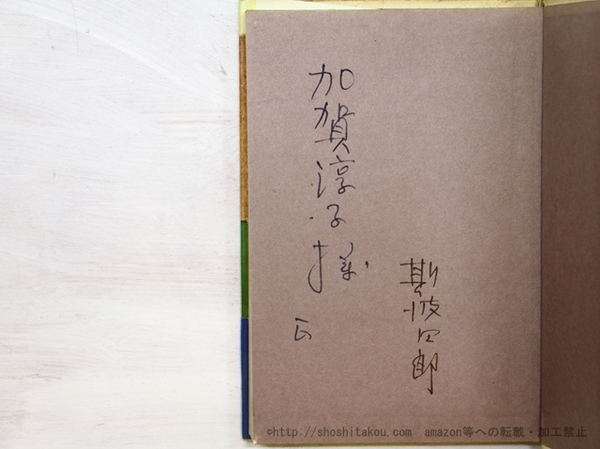 加賀淳子様
斯波四郎
©http://shoshitakou.com amazon等への転載・加工禁止